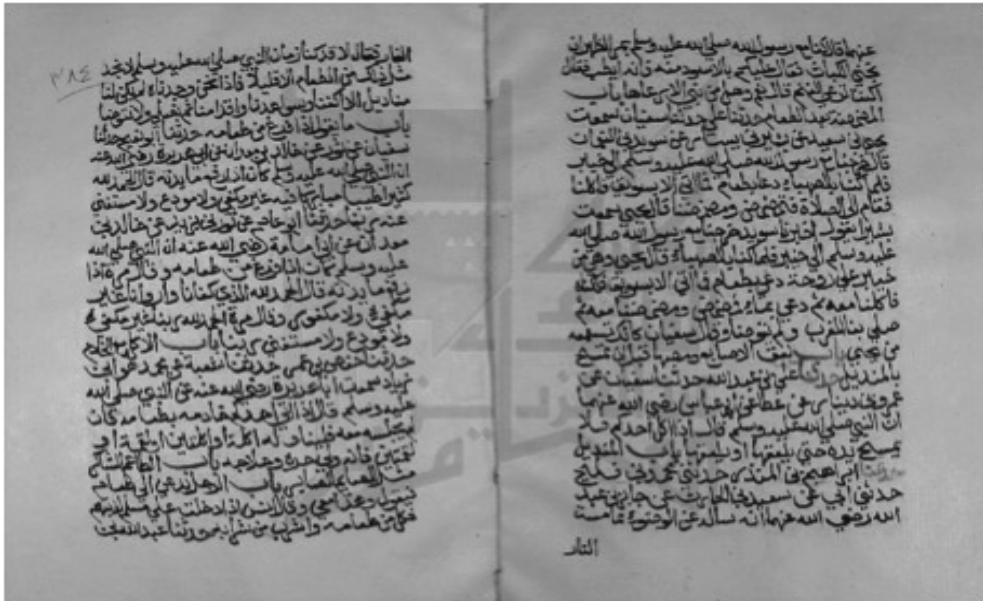 عنهما قال كنا مع رسول الله صلى الله عليه وسلم بمر الظهران
نجني الكباث فقال عليكم بالاسود منه فانه ايطب فقال
اكنت ترعى الغنم قال نعم وهل من نبي الا رعاها باب
المضمضة بعد الطعام حدثنا علي حدثنا سفيان سمعت
يحيى بن سعيد عن بشير بن يسار عن سويد بن النعمان
قال خرجنا مع رسول الله صلى الله عليه وسلم الى خيبر
فلما كنا بالصهباء دعا بطعام فما اتي الا بسويق فاكلنا
فقام الى الصلاة فتمضمض ومضمضنا قال يحيى سمعت
بشيرا يقول حدثنا سويد خرجنا مع رسول الله صلى الله
عليه وسلم الى خيبر فلما كنا بالصهباء قال يحيى وهي من
خيبر على روحة دعى بطعام فما اتي الا بسويق فلكناه
فاكلنا معه ثم دعى بماء فمضمض ومضمضنا معه ثم
صلى بنا المغرب ولم يتوضا وقال سفيان كانك تسمعه
من يحيى باب لعق الاصابع ومصها قبل ان تمسح
بالمنديل حدثنا علي بن عبد الله حدثنا سفيان عن
عمرو بن دينار عن عطا عن ابن عباس رضي الله عنهما
ان النبي صلى الله عليه وسلم قال اذا اكل احدكم فلا
يمسح يده حتى يلعقها او يلعقها باب المنديل
ابراهيم بن المنذر حدثني محمد بن فليح
حدثني ابي عن سعيد بن الحارث عن جابر بن عبد
الله رضي الله عنهما انه ساله عن الوضوء مما مست
النار
٣٨٤
النار فقال لا قد كنا زمان النبي صلى الله عليه وسلم لا نجد
مثل ذلك من الطعام الا قليلا فاذا نحن وجدناه لم يكن لنا
مناديل الا اكفنا وسواعدنا واقدامنا ثم نصلي ولا نتوضا
باب ما يقول اذا فرغ من طعامه حدثنا ابو نعيم حدثنا
سفيان عن ثور عن خالد بن معدان عن ابي
ان النبي صلى الله عليه وسلم كان اذا رفع مايدته قال الحمد لله
كثيرا طيبا مباركا فيه غير مكفي ولا مودع ولا مستغنى
عنه ربنا حدثنا ابو عاصم عن ثور بن يزيد عن خالد بن
معدان عن ابي امامة رضي الله عنه ان النبي صلى الله
عليه وسلم كان اذا فرغ من طعامه وقال مرة اذا
رفع مايدته قال الحمد لله الذي كفانا واروانا غير
مكفي ولا مكفور وقال مرة الحمد لله ربنا غير مكفي
ولا مودع ولا مستغنى ربنا باب الاكل مع الخادم
حدثنا حفص بن عمر حدثنا شعبة عن محمد هو ابن
زياد سمعت ابا هريرة رضي الله عنه عن النبي صلى الله
عليه وسلم قال اذا اتى احدكم خادمه بطعامه فان
يجلسه معه فليناوله اكلة او اكلتين او لقمة او
لقمتين فانه ولي حره وعلاجه باب الطاعم الشاكر
مثل الصايم الصابر باب الرجل يدعى الى طعام
فيقول وهذا معي وقال انس اذا دخلت على مسلم لا يتهم
فكل من طعامه واشرب من شرابه حدثنا عبد الله بن